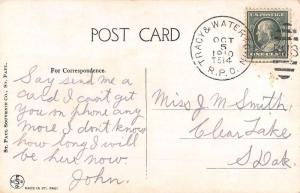 POST CARD
TRACY & WATERTOWN
OCT
5
1910
T514
R.P.O.
ONE CENT
For Correspondence.
Say send me a
card I can't get
you on phone any
more I don't know
how long I will
be here now.
John.
Miss J M Smith,
Clear Lake
S Dak.
ST. PAUL SOUVENIR CO., ST. PAUL.
MADE IN ST. PAUL